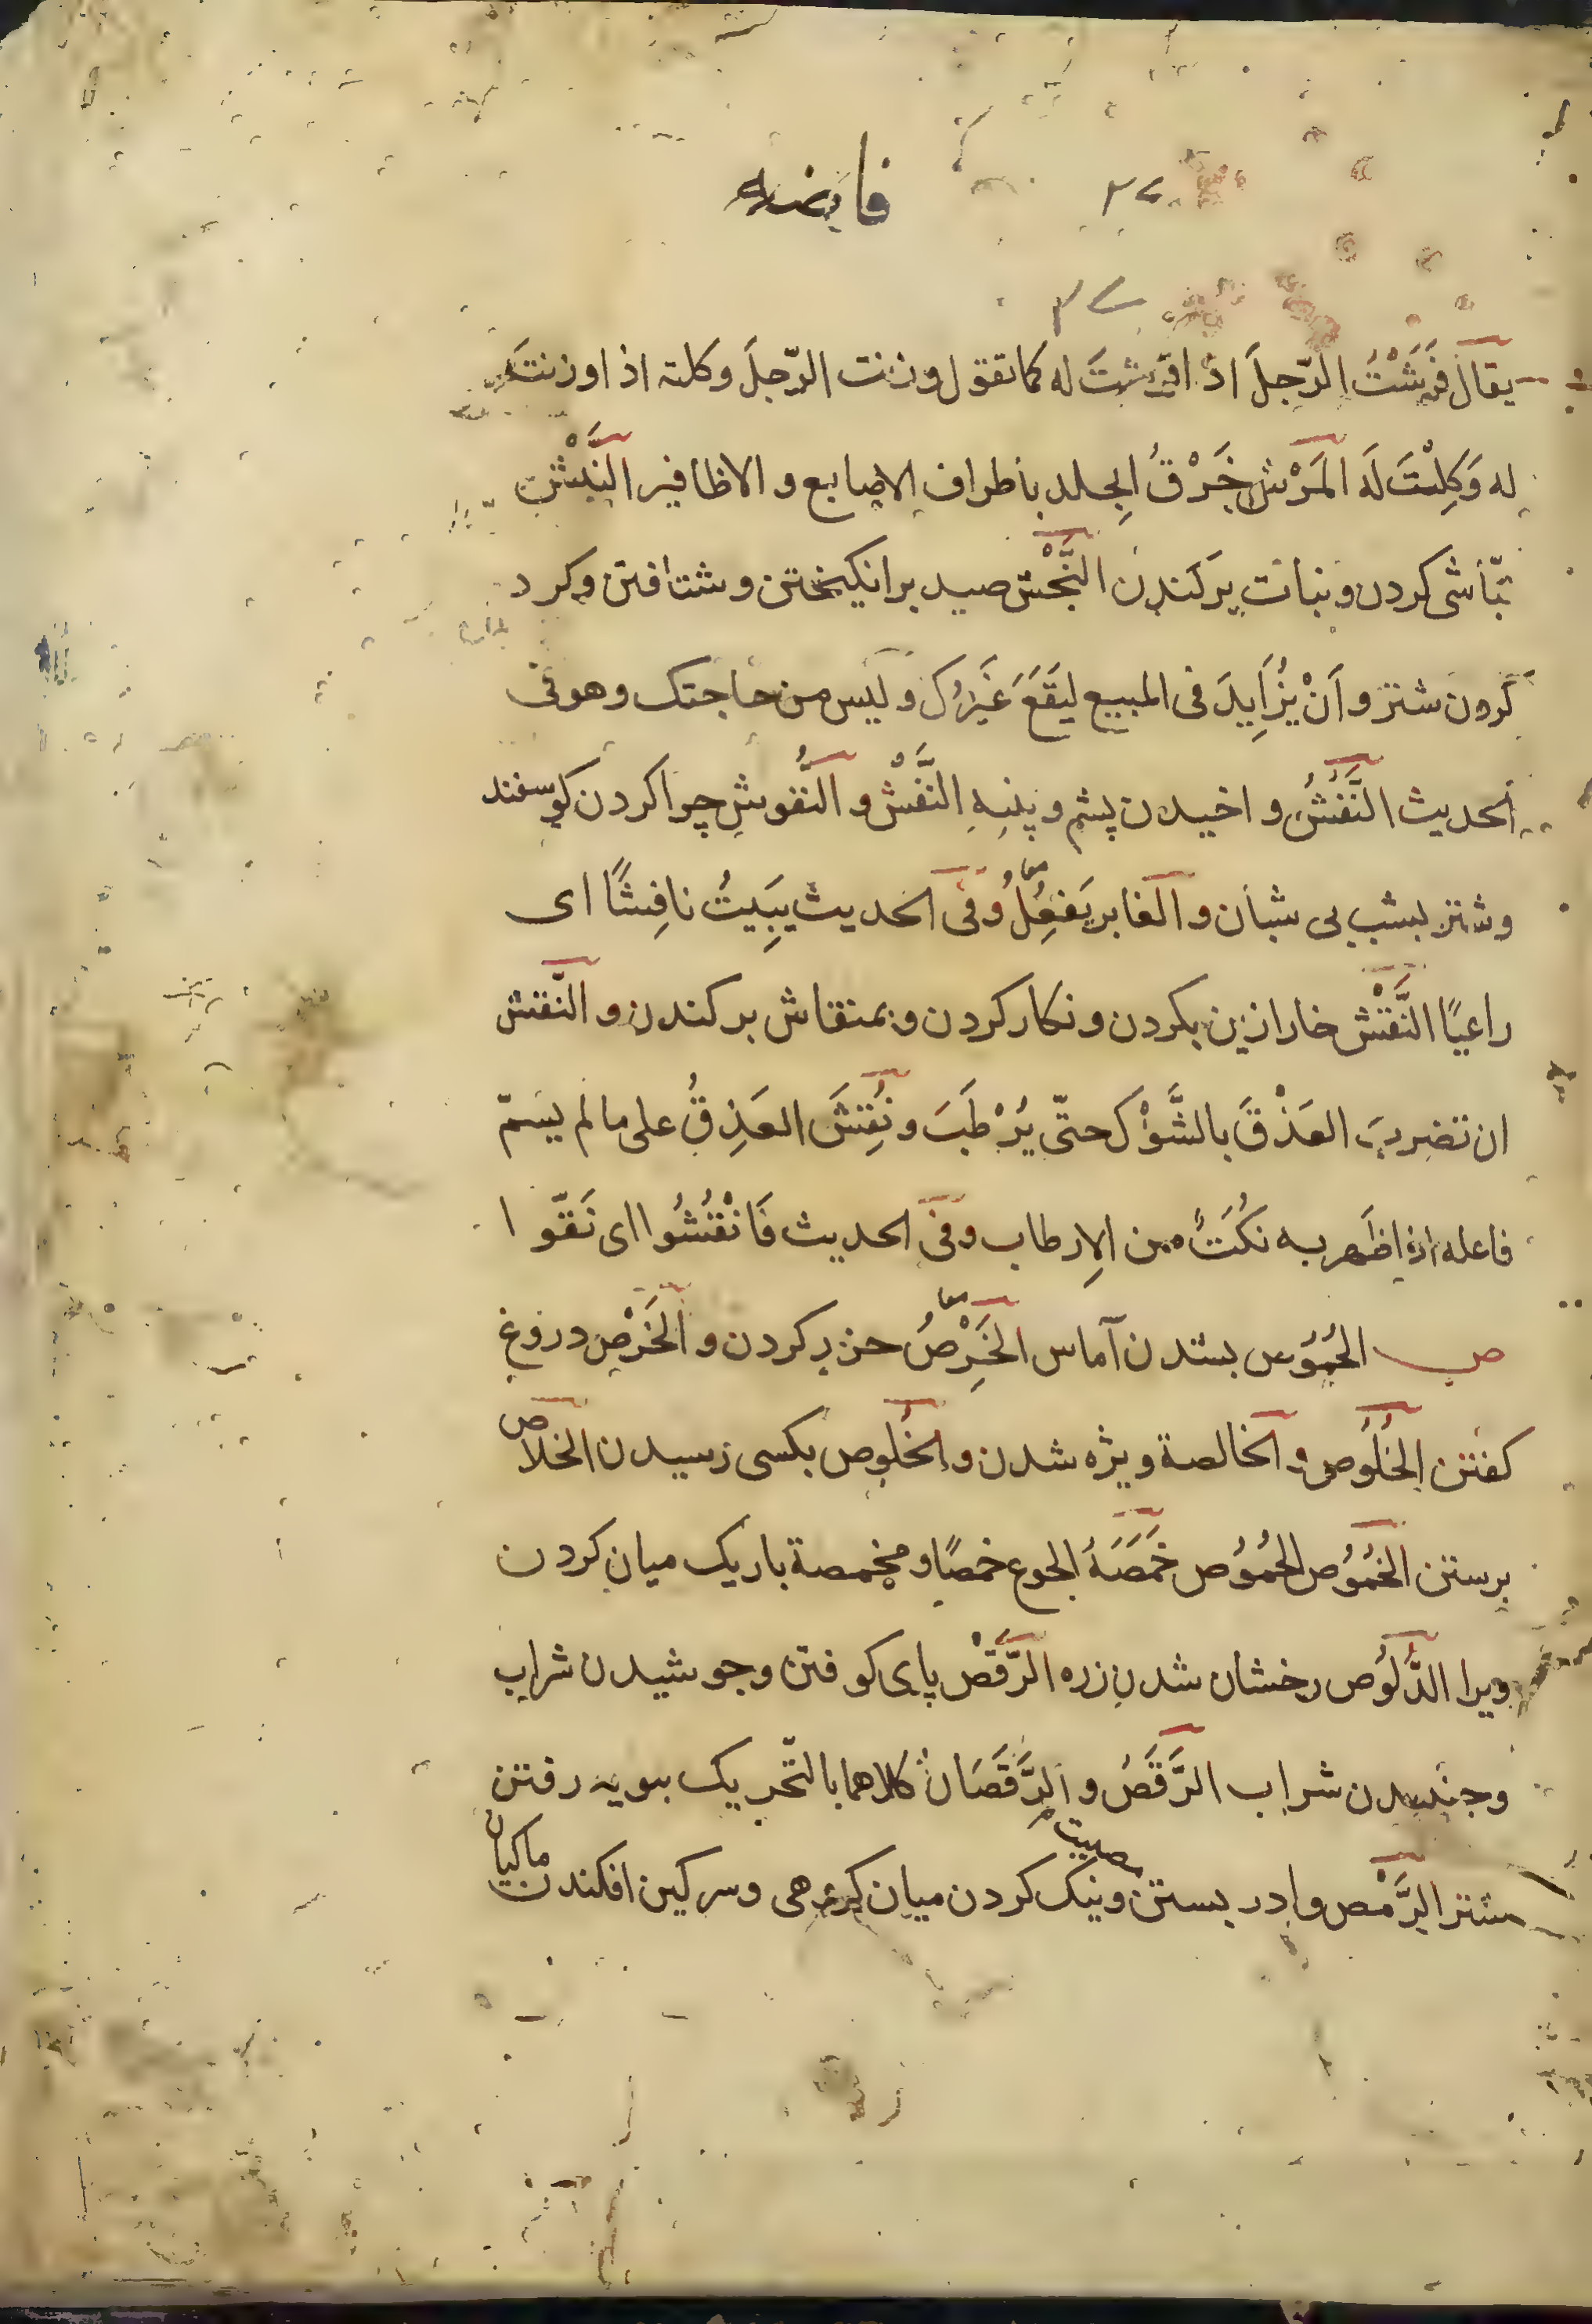 ۳۷
۳۷
یقال فَرَشْتُ الرّجلَ اذ افترشتَ له کما تقول وزنت الرّجلَ وکلته اذا وزنتَ
له وَکِلْتَ لَه المَرْش خَرْقُ الجِلد باطراف الاصابع و الاظافیر النَّبْش
نبّاشی کردن و نبات برکندن النَّجْش صید برانکیختن و شتافتن و کرد
کردن شتر و اَنْ یُزَایِدَ فی المبیع لیَقَعَ غَیرُک و لیس من حاجتک و هو فی
الحدیث النَّفْشُ واخیدن پشم و پنبهِ النَّفْش و النُّفوش چرا کردن کوسفند
و شتر بشب بی شبان و الغابر یَفعِلُ و فی الحدیث یَبِیتُ نافِشًا ای
راعیًا النَّقْش خار از پن بکردن و نکار کردن و بمنقاش بر کندن و النّقش
ان تضربَ العَذْقَ بالشَّوْک حتّی یُرْطَبَ و نُقِشَ العَذِقُ علی ما لم یسمّ
فاعله اذا ظَهر به نُکَتٌ من الاِرطاب و فی الحدیث فَانْقُشُوا ای نَقّوا
ص الحُمُوُص بشدن آماس الخَرِْصُ حزر کردن و الخَرْص دروغ
کفتن الخُلُوُص و الخالصة ویژه شدن و الخُلوص بکسی رسیدن الخلاص
برستن الخُمُوُص الحُمُوُص خَمَصَهُ الجوع خمصًا و مخمصة باریک میان کردن
ویرا الدُّلوُص رخشان شدن زره الرَّقْص پای کوفتن و جوشیدن شراب
و جنبیدن شراب الرَّقَصُ و الرَّقَصَانُ کلاهما بالتّحریک ببویه رفتن
شتر الرَّمْص وادر بستن مصیبت و نیک کردن میان کروهی و سرکین افکندن ماکیان